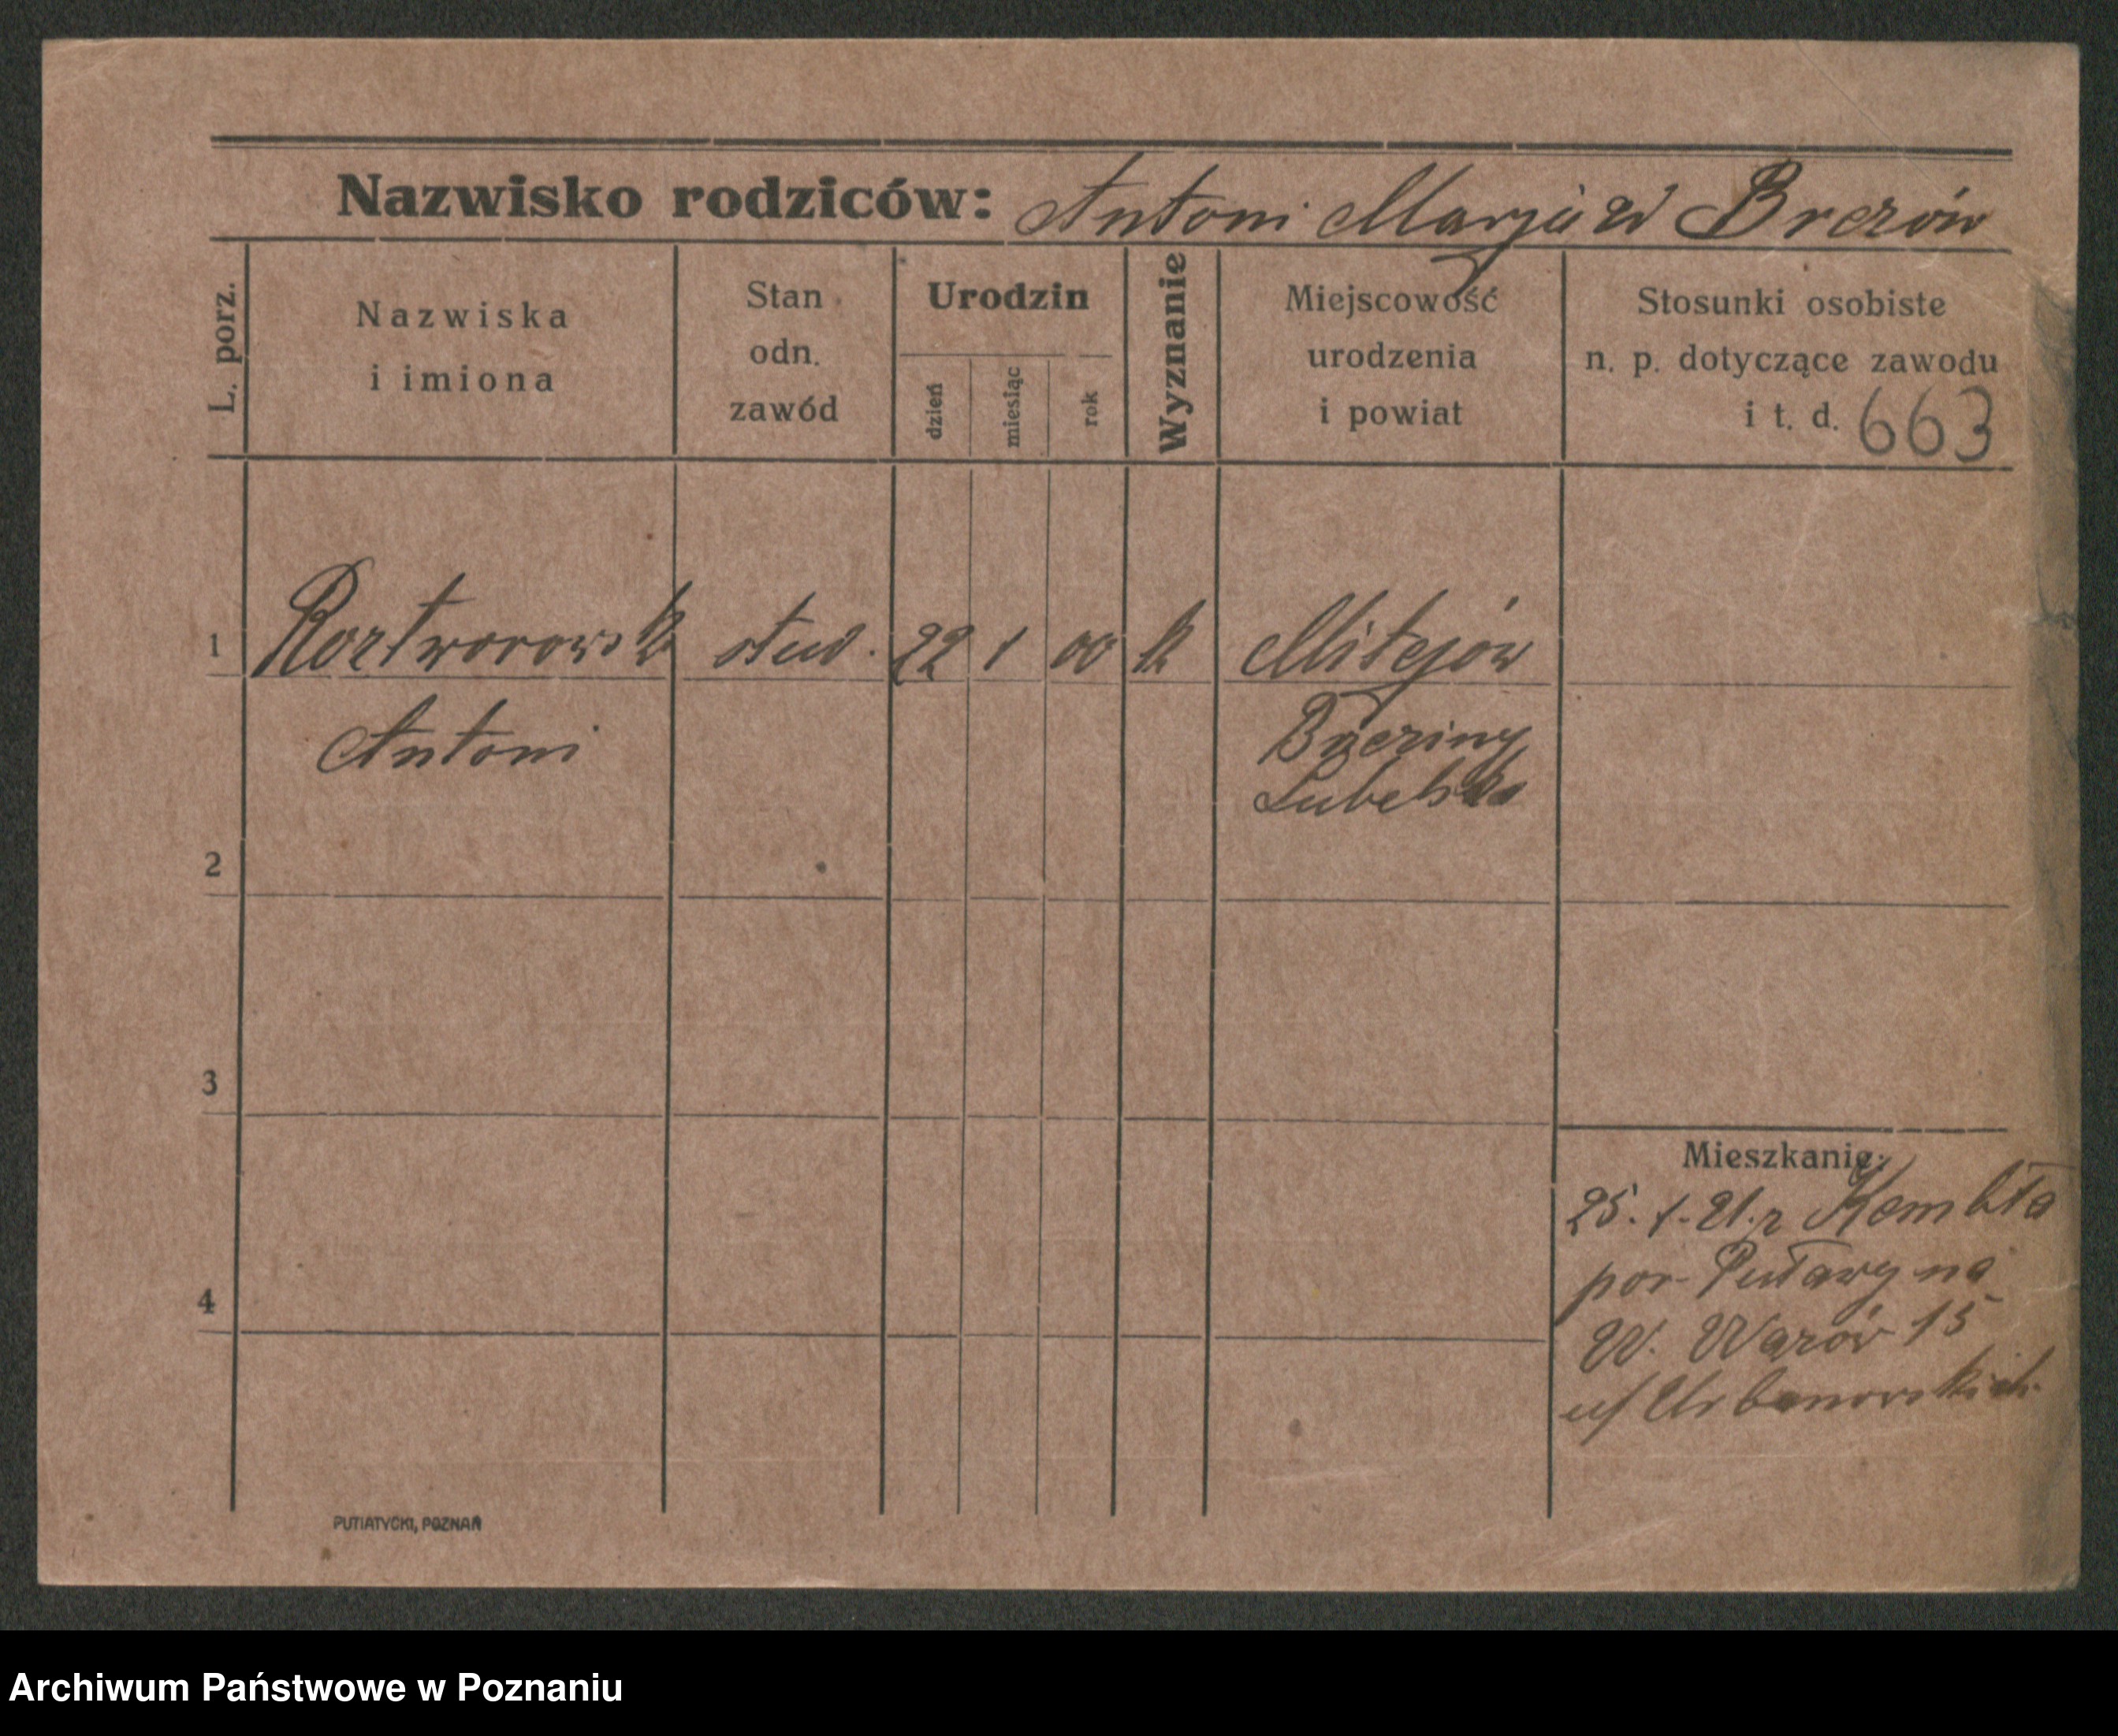 Nazwisko rodziców: Antoni Marja z d Brezów
L. porz.
Nazwiska
i imiona
Stan
odn.
zawód
Urodzin
dzień
miesiąc
rok
Wyznanie
Miejscowość
urodzenia
i powiat
Stosunki osobiste
n. p. dotyczące zawodu
i t. d. 663
1 Roztworowsk stud. 22 1 00 k Milejów
Antoni
Lubelska
2
3
4
Mieszkanie:
25. 1. 21. r Kembła
Puławy na
W. Wazów 15
u/ Urbanowskich
PUTIATYCKI, POZNAŃ
Archiwum Państwowe w Poznaniu